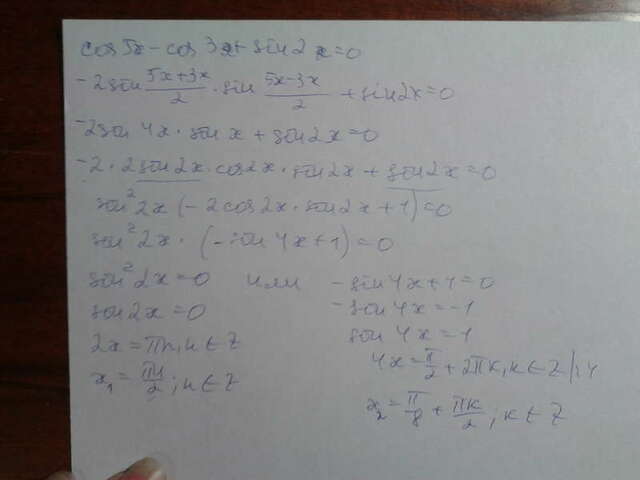 cos 5x - cos 3x + sin 2x = 0
-2 sin (5x+3x)/2 · sin (5x-3x)/2 + sin 2x = 0
-2 sin 4x · sin x + sin 2x = 0
-2 · 2 sin 2x · cos 2x · sin 2x + sin 2x = 0
sin² 2x (-2 cos 2x · sin 2x + 1) = 0
sin² 2x · (-sin 4x + 1) = 0
sin² 2x = 0 или -sin 4x + 1 = 0
sin 2x = 0 -sin 4x = -1
sin 4x = 1
2x = πn, n ∈ Z 4x = π/2 + 2πk, k ∈ Z |:4
x₁ = πn/2 ; n ∈ Z x₂ = π/8 + πk/2 ; k ∈ Z